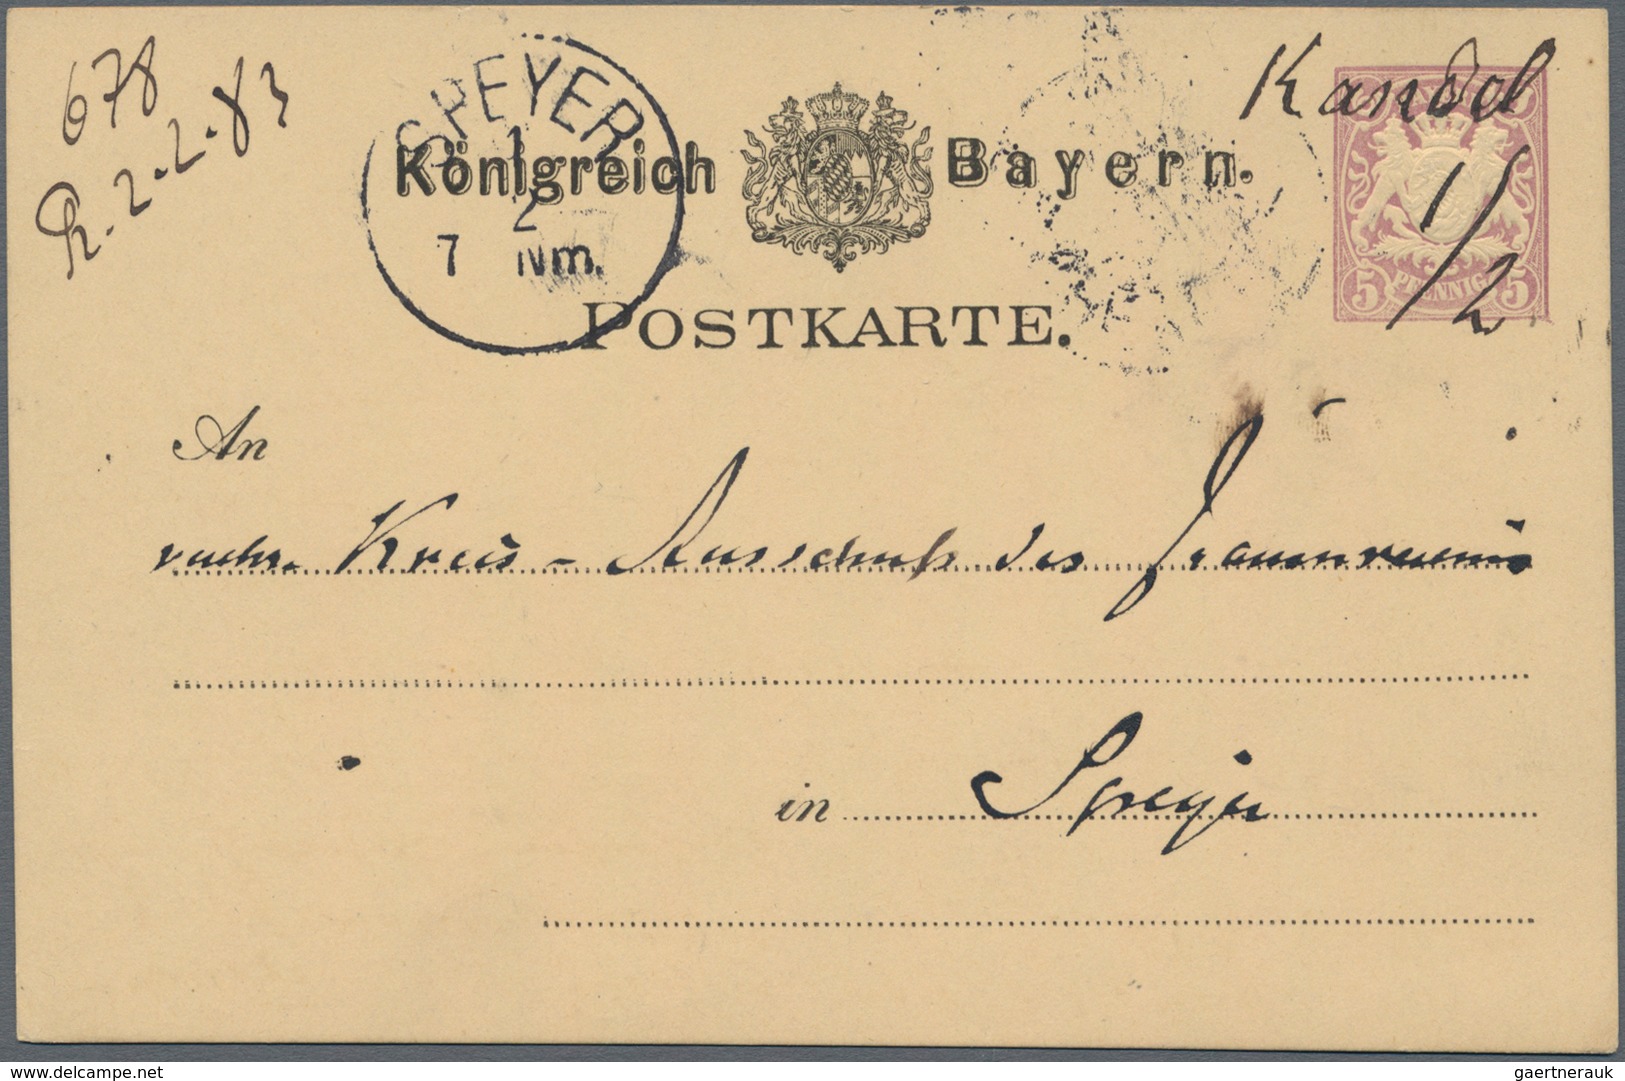 678
R. 2.2.83
SPEYER
2
7 Nm.
Königreich Bayern.
Kandel
1/2
BAYERN
5 PFENNIG 5
POSTKARTE.
An
Kreis-Ausschuß des Frauenvereins
in Speyer
gaertnerauk